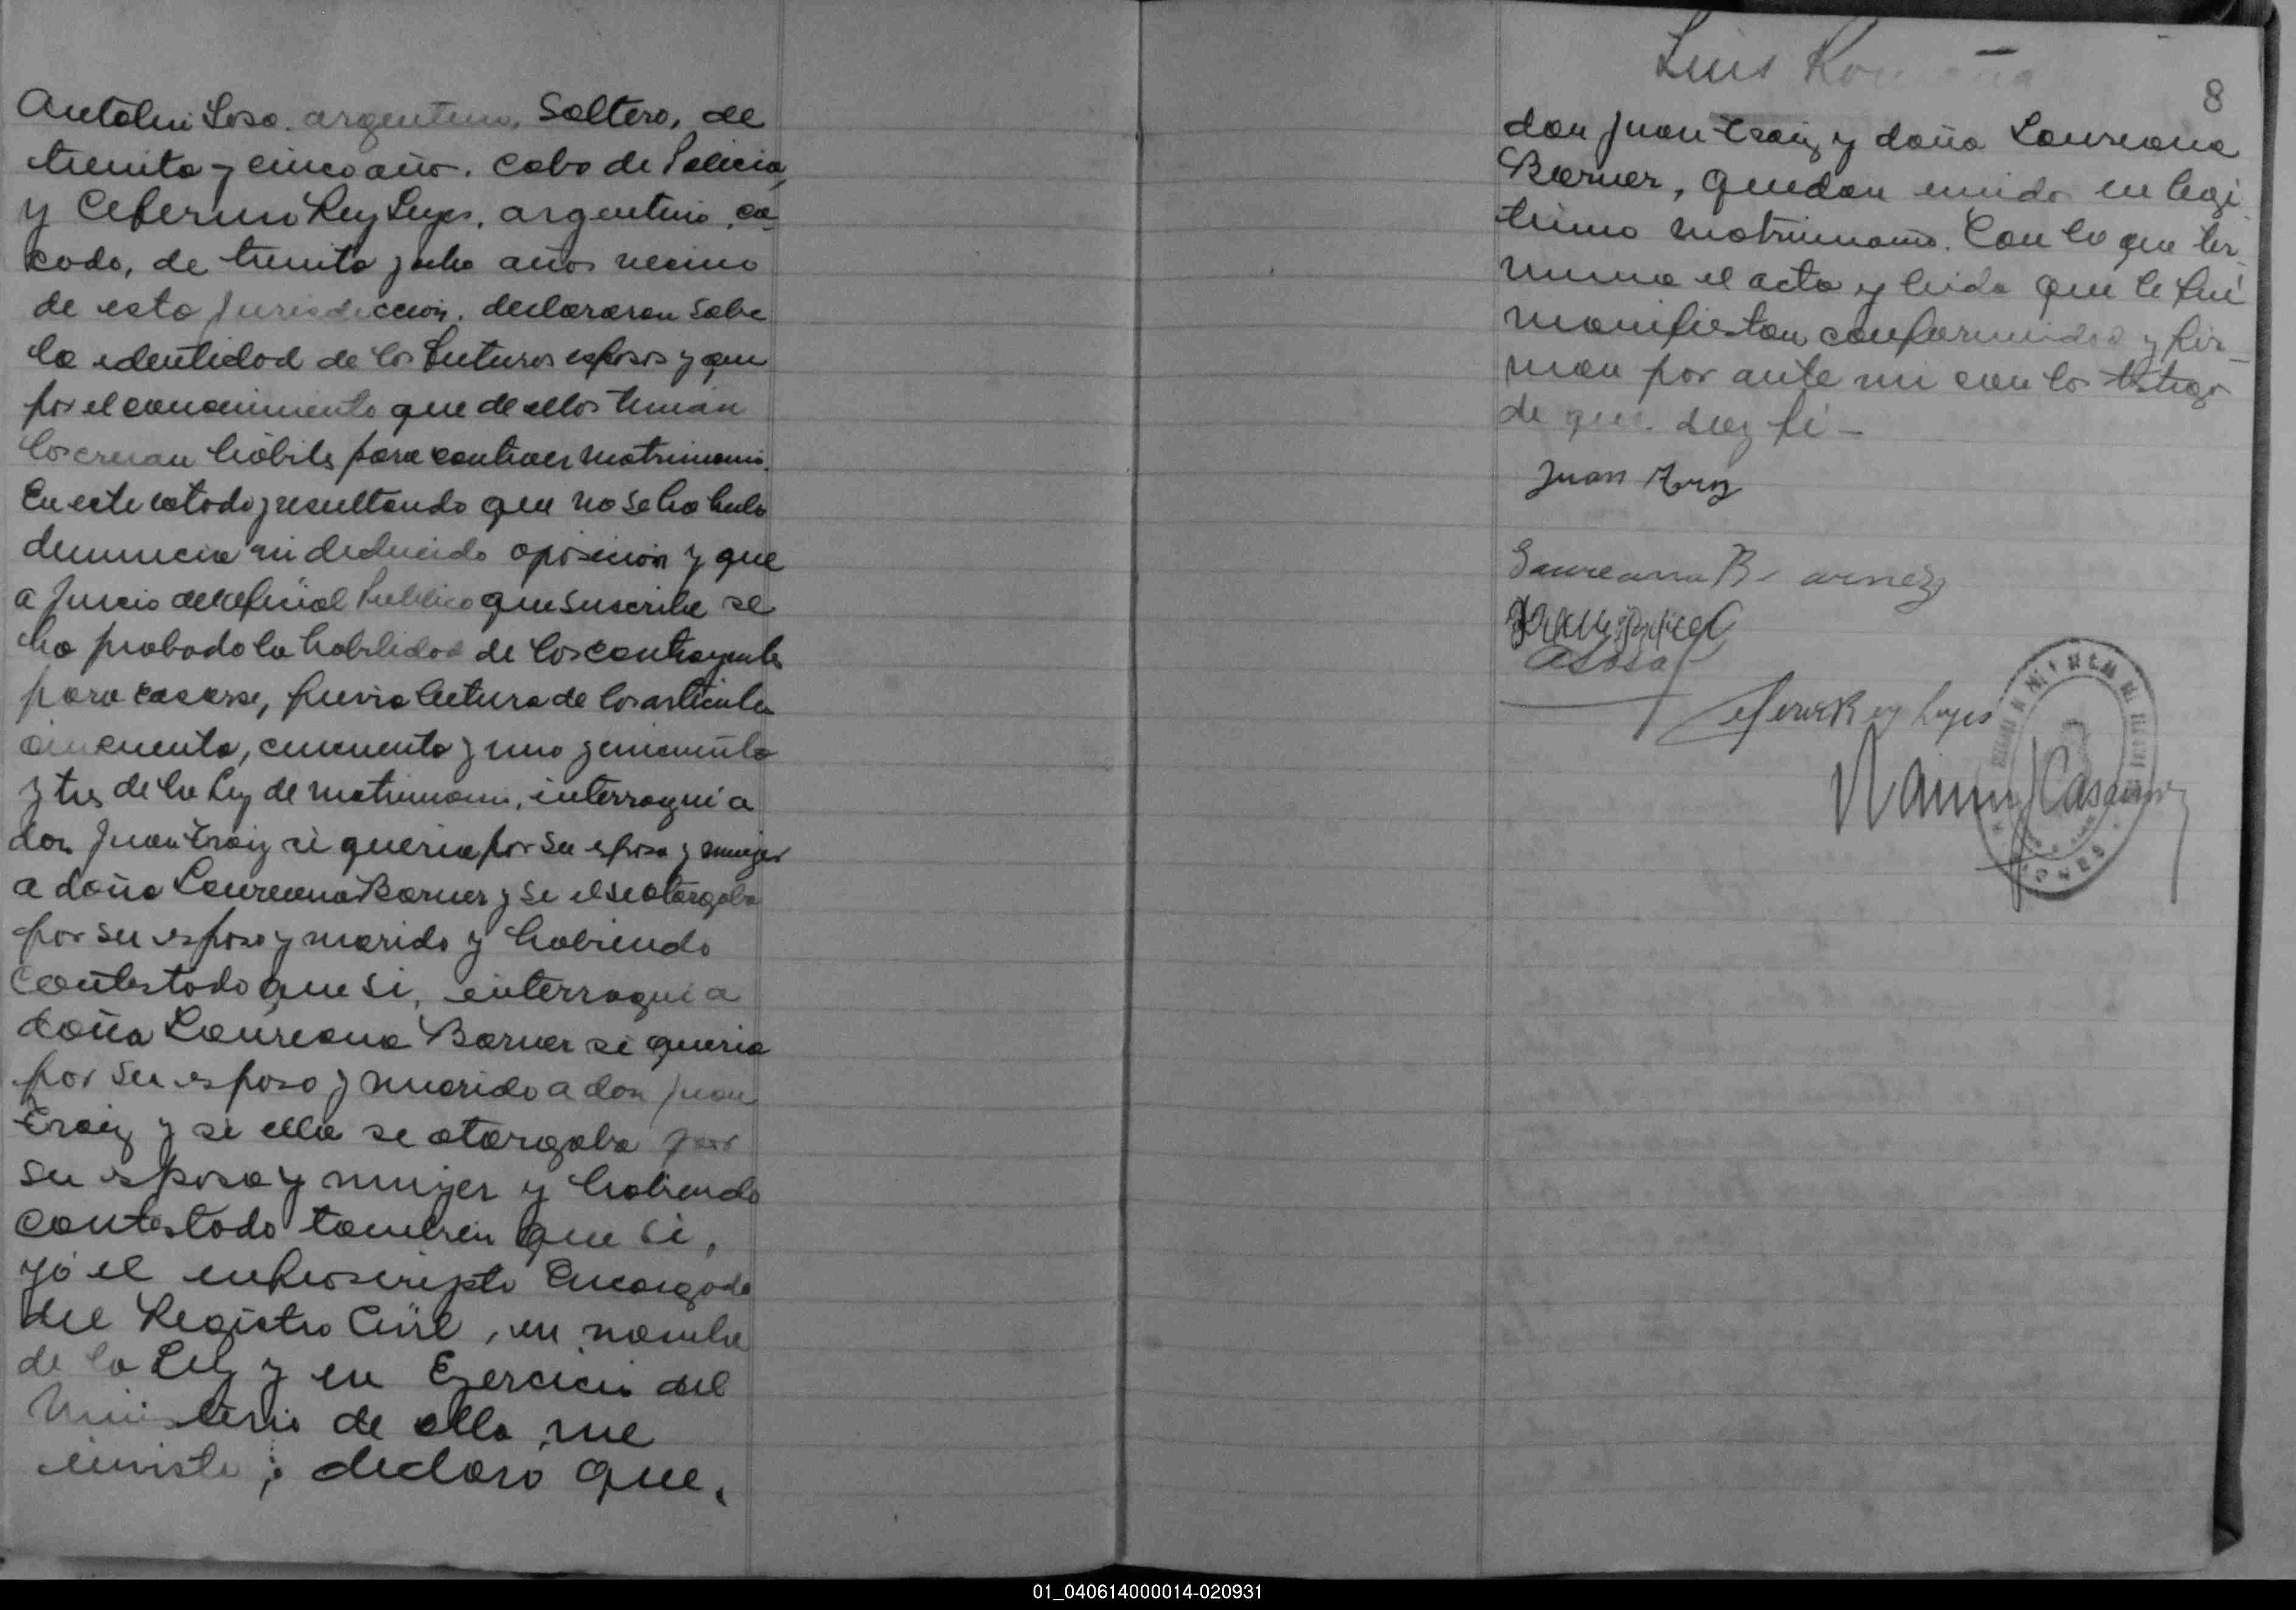 Antolin Sosa. argentino, Soltero, de
treinta y cinco año. Cabo de Policia,
y Ceferino Rey Leyes. argentino, ca-
sado, de treinta y ocho años vecino
de esta Jurisdiccion. declararon sabe
la identidad de los futuros esposos y que
por el conocimiento que de ellos tenian
los creian hábiles para contraer matrimonio.
En este estado y resultando que no se ha hecho
denuncia ni deducido oposicion y que
a Juicio del oficial Publico que suscribe se
ha probado la habilidad de los contrayentes
para casarse, previa lectura de los articulos
cincuenta, cincuenta y uno y cincuenta
y tres de la Ley de matrimonio, interrogui a
don Juan Traiz si queria por su esposa y mujer
a doña Laureana Barner y se el se otorgaba
por su esposo y marido y habiendo
contestado que si, interrogui a
doña Laureana Barner si queria
por su esposo y marido a don Juan
Traiz y si ella se otorgaba por
su esposa y mujer y habiendo
contestado tambien que si,
yó el infrascripto Encargado
del Registro Civil, en nombre
de la Ley y en Ejercicio del
Ministerio de ella me
inviste; declaro que.
Luis Romaña
8
don Juan Traiz y doña Laureana
Barner, quedan unidos en legi-
timo matrimonio. Con lo que ter-
mina el acta y leida que le fué
manifiestan conformidad y fir-
man por ante mi con los testigos
de que doy fé —
Juan
Laureana B
A Sosa
Rey Leyes